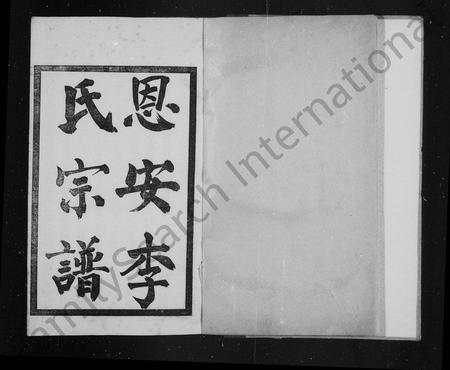 恩安李
氏宗譜
FamilySearch International